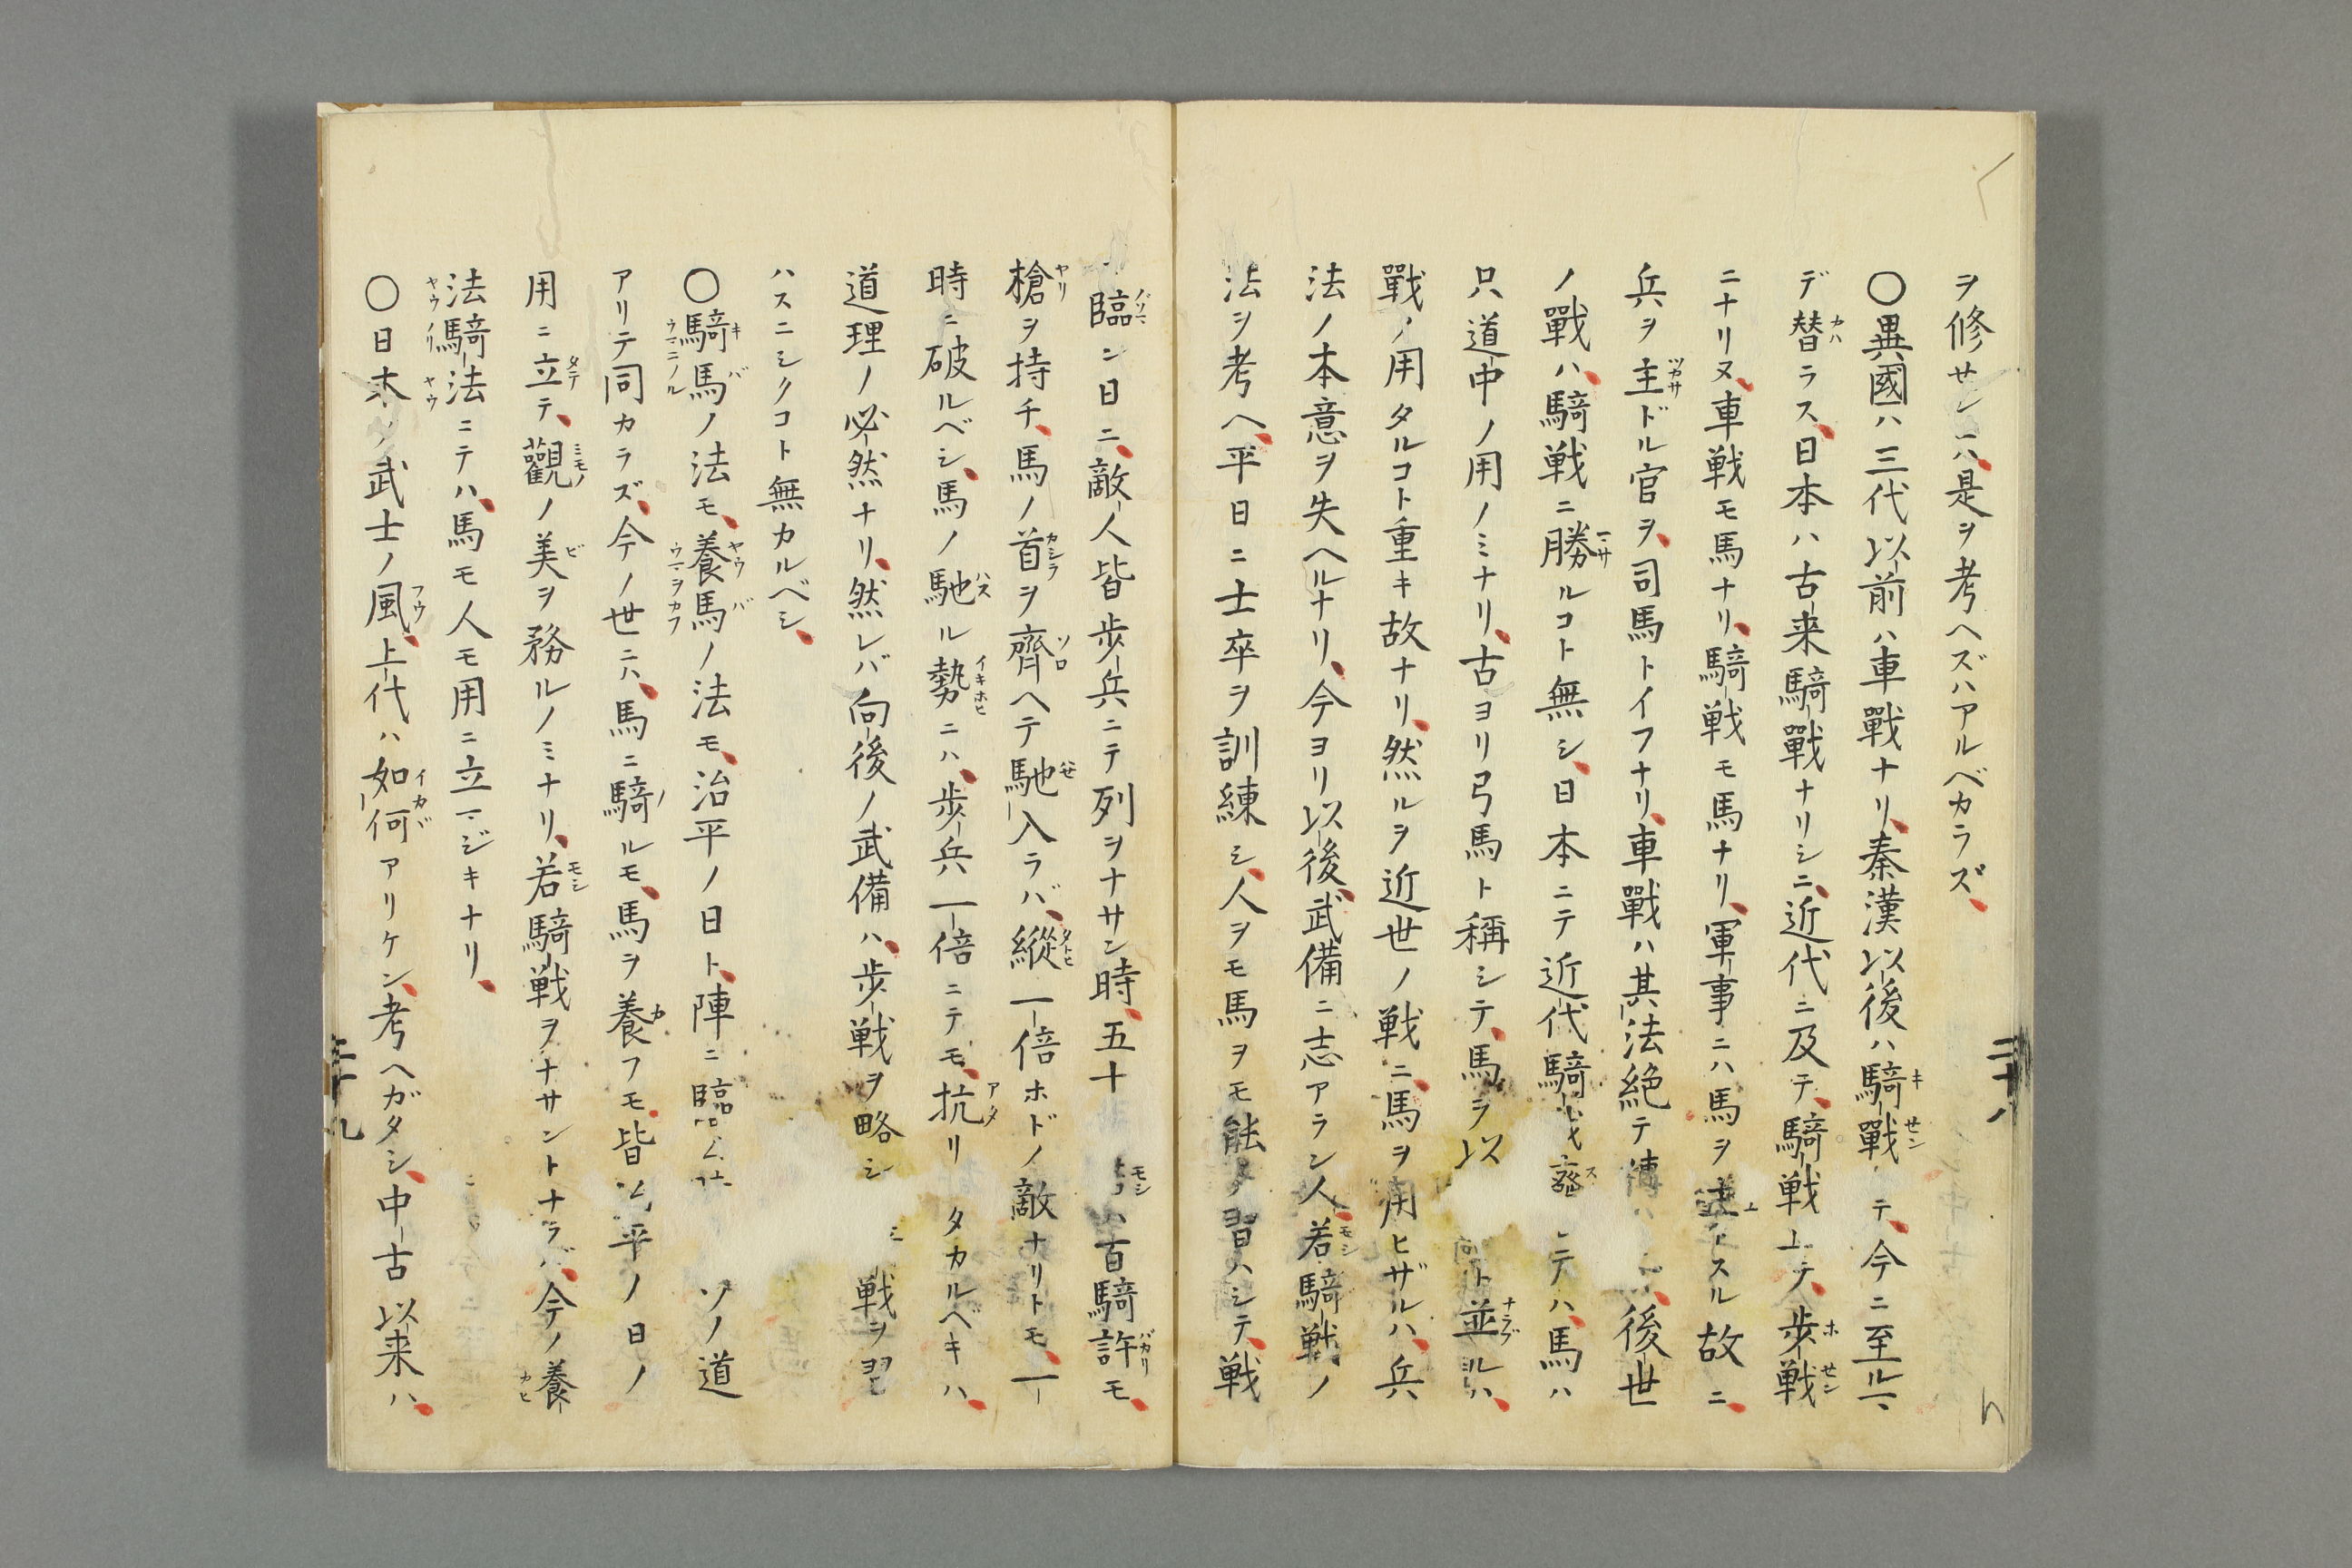 ヲ修センニハ、是ヲ考ヘズハアルベカラズ、
〇異國ハ三代以前ハ車戰ナリ、秦漢以後ハ騎戰 テ、今ニ至ルマ
デ替ラス、日本ハ古来騎戰ナリシニ、近代ニ及テ、騎戦止テ、歩戦
ニナリヌ、車戦モ馬ナリ、騎戦モ馬ナリ、軍事ニハ馬ヲ スル故ニ、
兵ヲ主ドル官ヲ、司馬トイフナリ、車戰ハ其法絶テ傳ハ 、後世
ノ戰ハ、騎戦ニ勝ルコト無シ、日本ニテ近代騎 テハ、馬ハ
只道中ノ用ノミナリ、古ヨリ弓馬ト稱シテ、馬ヲ以 ト並ルハ、
戰ノ用タルコト重キ故ナリ、然ルヲ近世ノ戦ニ、馬ヲ用ヒザルハ、兵
法ノ本意ヲ失ヘルナリ、今ヨリ以後、武備ニ志アラン人、若騎戦ノ
法ヲ考ヘ、平日ニ士卒ヲ訓練シ、人ヲモ馬ヲモ能ク習ハシテ、戦
二十八
ニ臨ン日ニ、敵人皆歩兵ニテ列ヲナサン時、五十 ハ百騎許モ、
槍ヲ持チ、馬ノ首ヲ齊ヘテ馳入ラバ、縱一倍ホドノ敵ナリトモ、一
時ニ破ルベシ、馬ノ馳ル勢ニハ、歩兵一倍ニテモ、抗リ タカルベキハ、
道理ノ必然ナリ、然レバ向後ノ武備ハ、歩戦ヲ略シ 戦ヲ習
ハスニシクコト無カルベシ、
〇騎馬ノ法モ、養馬ノ法モ、治平ノ日ト、陣ニ臨 ソノ道
アリテ同カラズ、今ノ世ニハ、馬ニ騎ルモ、馬ヲ養フモ、皆治平ノ日ノ
用ニ立テ、觀ノ美ヲ務ルノミナリ、若騎戦ヲナサントナラバ、今ノ養
法騎法ニテハ、馬モ人モ用ニ立マジキナリ、
〇日本ノ武士ノ風、上代ハ如何アリケン、考ヘガタシ、中古以来ハ、
二十九